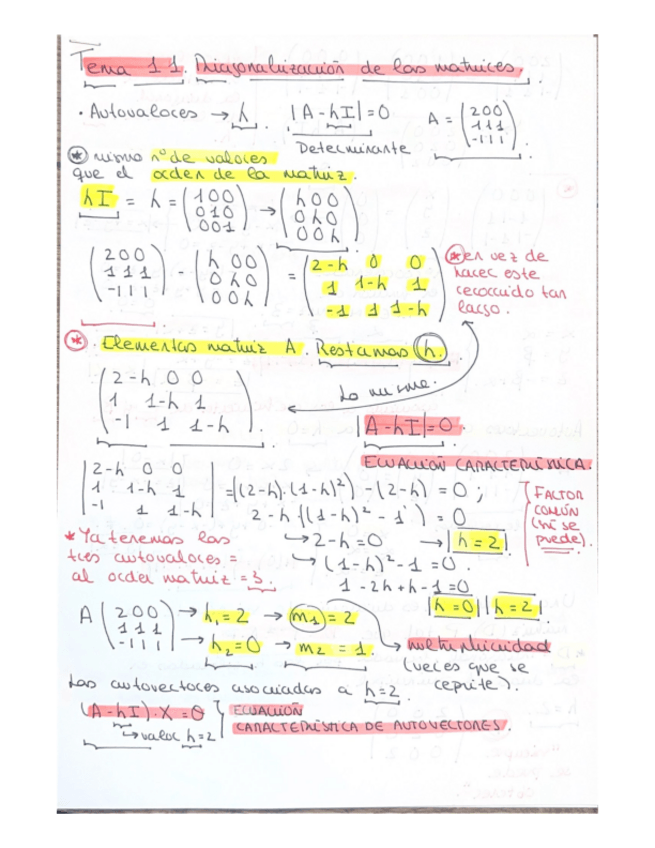 Tema 11. Diagonalización de las matrices.
· Autovalores → h. |A-hI|=0 A = (2 0 0
1 1 1
-1 1 1).
Determinante
* mismo nº de valores
que el orden de la matriz.
hI = h = (1 0 0
0 1 0
0 0 1) → (h 0 0
0 h 0
0 0 h)
(2 0 0
1 1 1
-1 1 1) - (h 0 0
0 h 0
0 0 h) = (2-h 0 0
1 1-h 1
-1 1 1-h)
* en vez de
hacer este
recorrido tan
largo.
* · Elementos matriz A. Restamos h.
(2-h 0 0
1 1-h 1
-1 1 1-h).
Lo mismo.
|A-hI|=0.
ECUACIÓN CARACTERÍSTICA.
|2-h 0 0
1 1-h 1
-1 1 1-h| = [(2-h)·(1-h)²] - (2-h) = 0;
2-h [(1-h)² - 1] = 0
↳ 2-h=0 → h=2.
↳ (1-h)² - 1 = 0.
1 - 2h + h - 1 = 0
h=0 h=2
FACTOR
COMÚN
(si se
puede).
* Ya tenemos los
tres autovalores =
al orden matriz = 3.
A (2 0 0
1 1 1
-1 1 1) → h₁=2 → m₁=2
→ h₂=0 → m₂=1.
multiplicidad
(veces que se
repite).
Los autovectores asociados a h=2.
(A-hI)·X=0
↳ valor h=2
ECUACIÓN
CARACTERÍSTICA DE AUTOVECTORES.